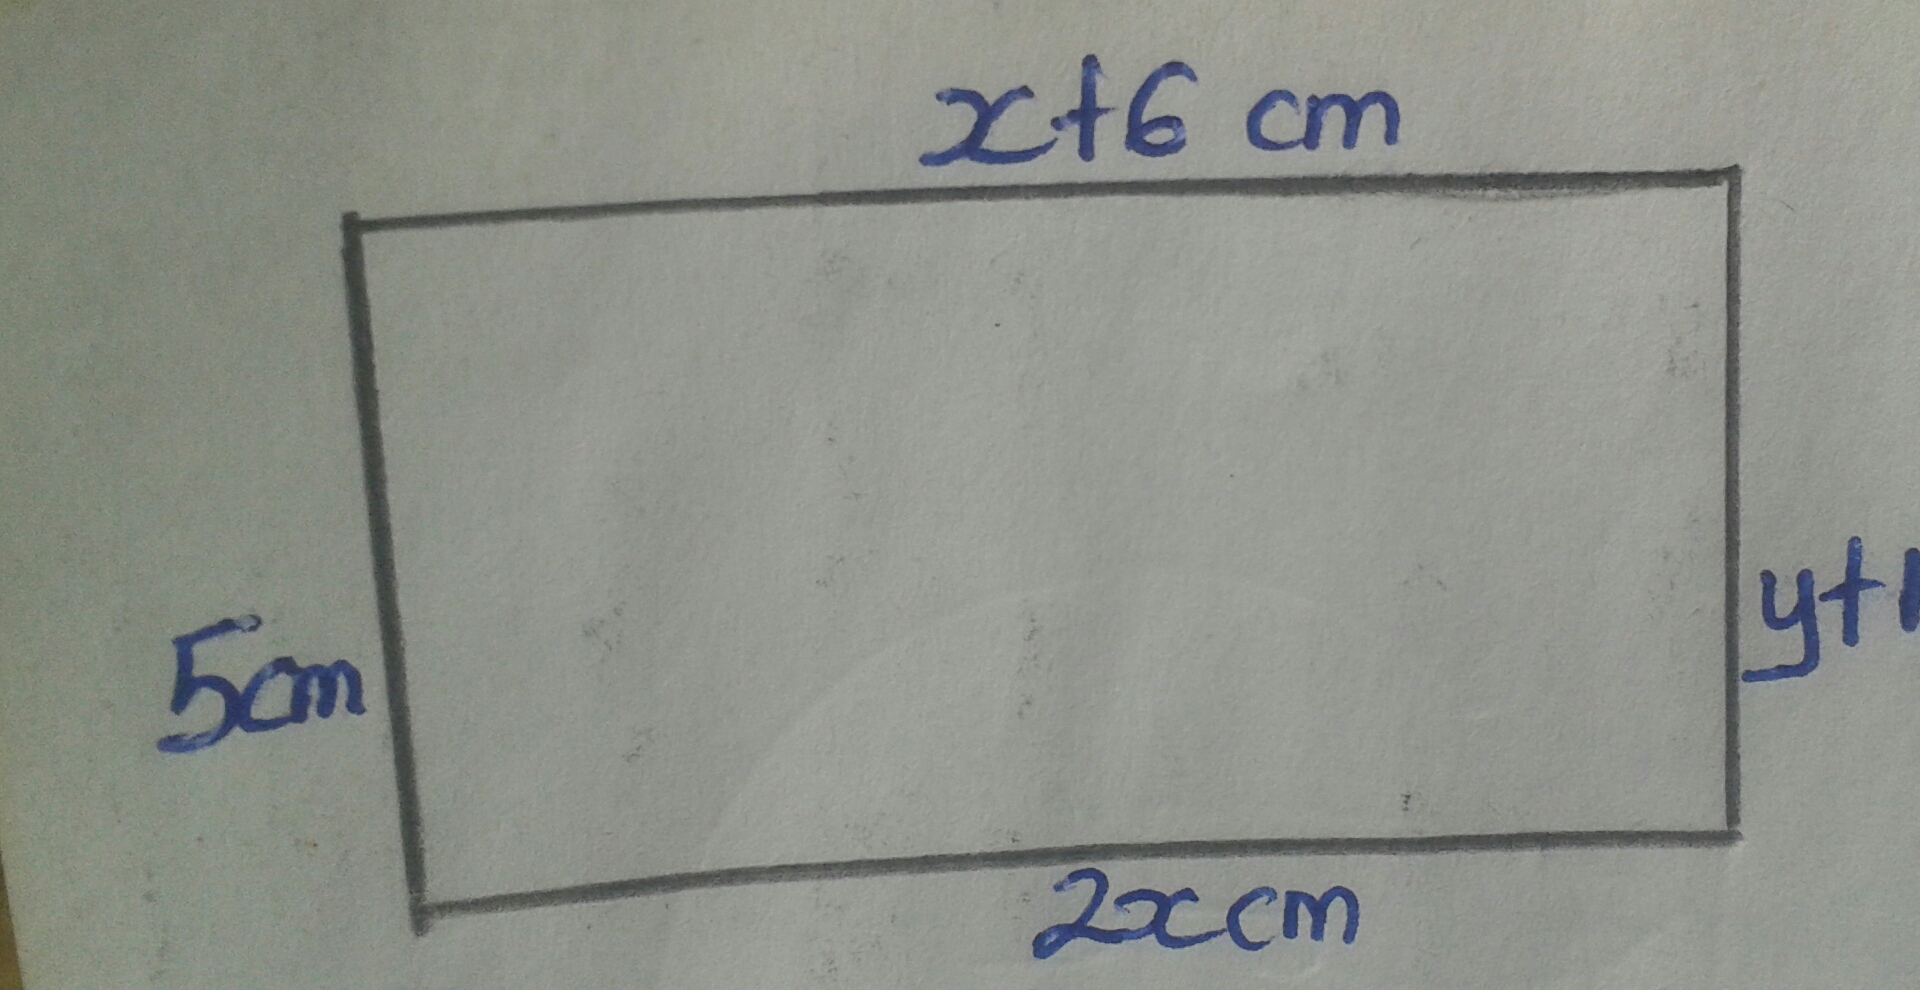 x+6 cm
5cm
y+1
2x cm